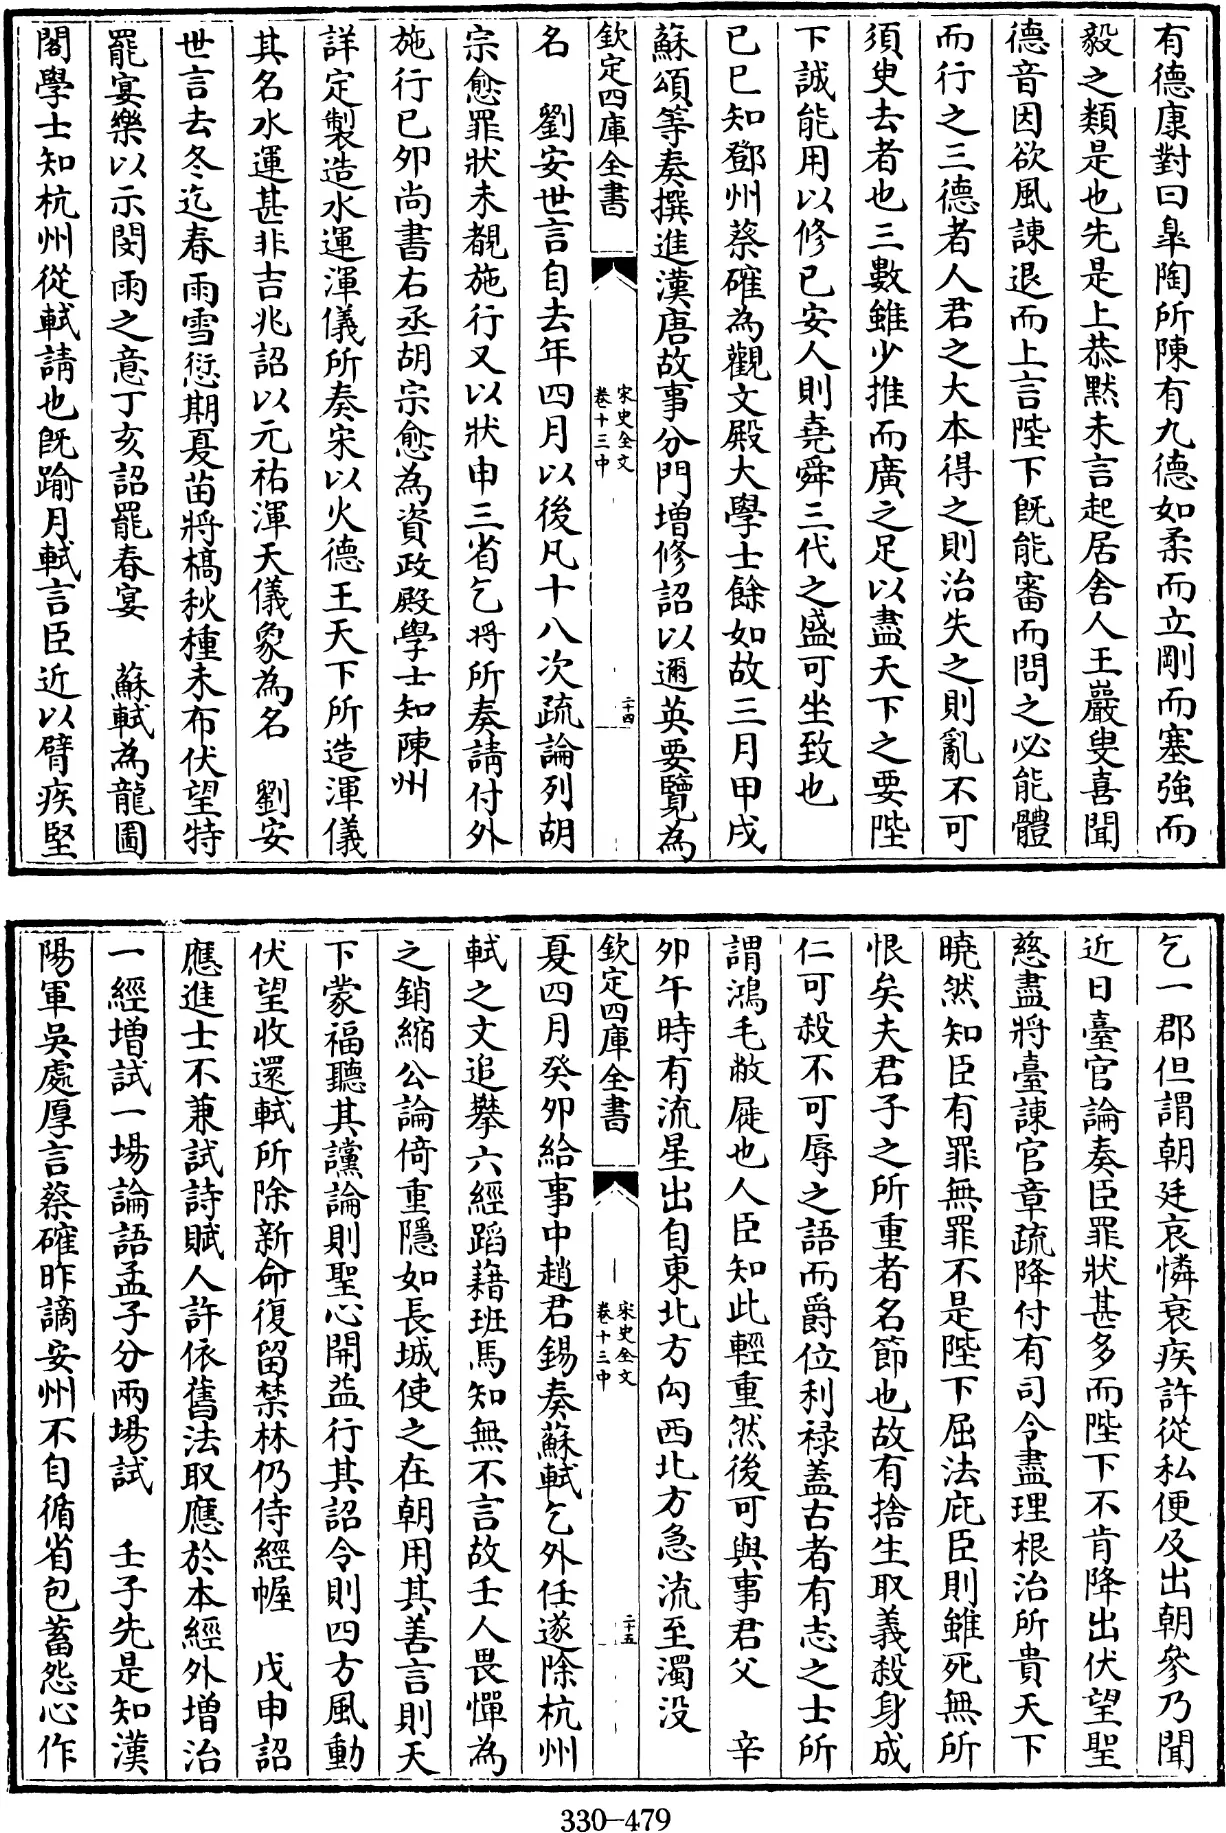 有德康對曰臯陶所陳有九德如柔而立剛而塞強而
毅之類是也先是上恭默未言起居舍人王巖叟喜聞
德音因欲風諫退而上言陛下既能審而問之必能體
而行之三德者人君之大本得之則治失之則亂不可
須臾去者也三數雖少推而廣之足以盡天下之要陛
下誠能用以修已安人則堯舜三代之盛可坐致也
已巳知鄧州蔡確為觀文殿大學士餘如故三月甲戌
蘇頌等奏撰進漢唐故事分門增修詔以邇英要覽為
欽定四庫全書
宋史全文
卷十三中
二十四
名　劉安世言自去年四月以後凡十八次疏論列胡
宗愈罪狀未覩施行又以狀申三省乞將所奏請付外
施行已夘尚書右丞胡宗愈為資政殿學士知陳州
詳定製造水運渾儀所奏宋以火德王天下所造渾儀
其名水運甚非吉兆詔以元祐渾天儀象為名　劉安
世言去冬迄春雨雪愆期夏苗將槁秋種未布伏望特
罷宴樂以示閔雨之意丁亥詔罷春宴　蘇軾為龍圖
閣學士知杭州從軾請也既踰月軾言臣近以臂疾堅
乞一郡但謂朝廷哀憐衰疾許從私便及出朝參乃聞
近日臺官論奏臣罪狀甚多而陛下不肯降出伏望聖
慈盡將臺諫官章疏降付有司令盡理根治所貴天下
曉然知臣有罪無罪不是陛下屈法庇臣則雖死無所
恨矣夫君子之所重者名節也故有捨生取義殺身成
仁可殺不可辱之語而爵位利祿蓋古者有志之士所
謂鴻毛敝屣也人臣知此輕重然後可與事君父　辛
夘午時有流星出自東北方向西北方急流至濁没
欽定四庫全書
宋史全文
卷十三中
二十五
夏四月癸夘給事中趙君錫奏蘇軾乞外任遂除杭州
軾之文追攀六經蹈藉班馬知無不言故壬人畏憚為
之銷縮公論倚重隱如長城使之在朝用其善言則天
下蒙福聽其讜論則聖心開益行其詔令則四方風動
伏望收還軾所除新命復留禁林仍侍經幄　戊申詔
應進士不兼試詩賦人許依舊法取應於本經外增治
一經增試一場論語孟子分兩場試　壬子先是知漢
陽軍吳處厚言蔡確昨謫安州不自循省包蓄怨心作
330-479